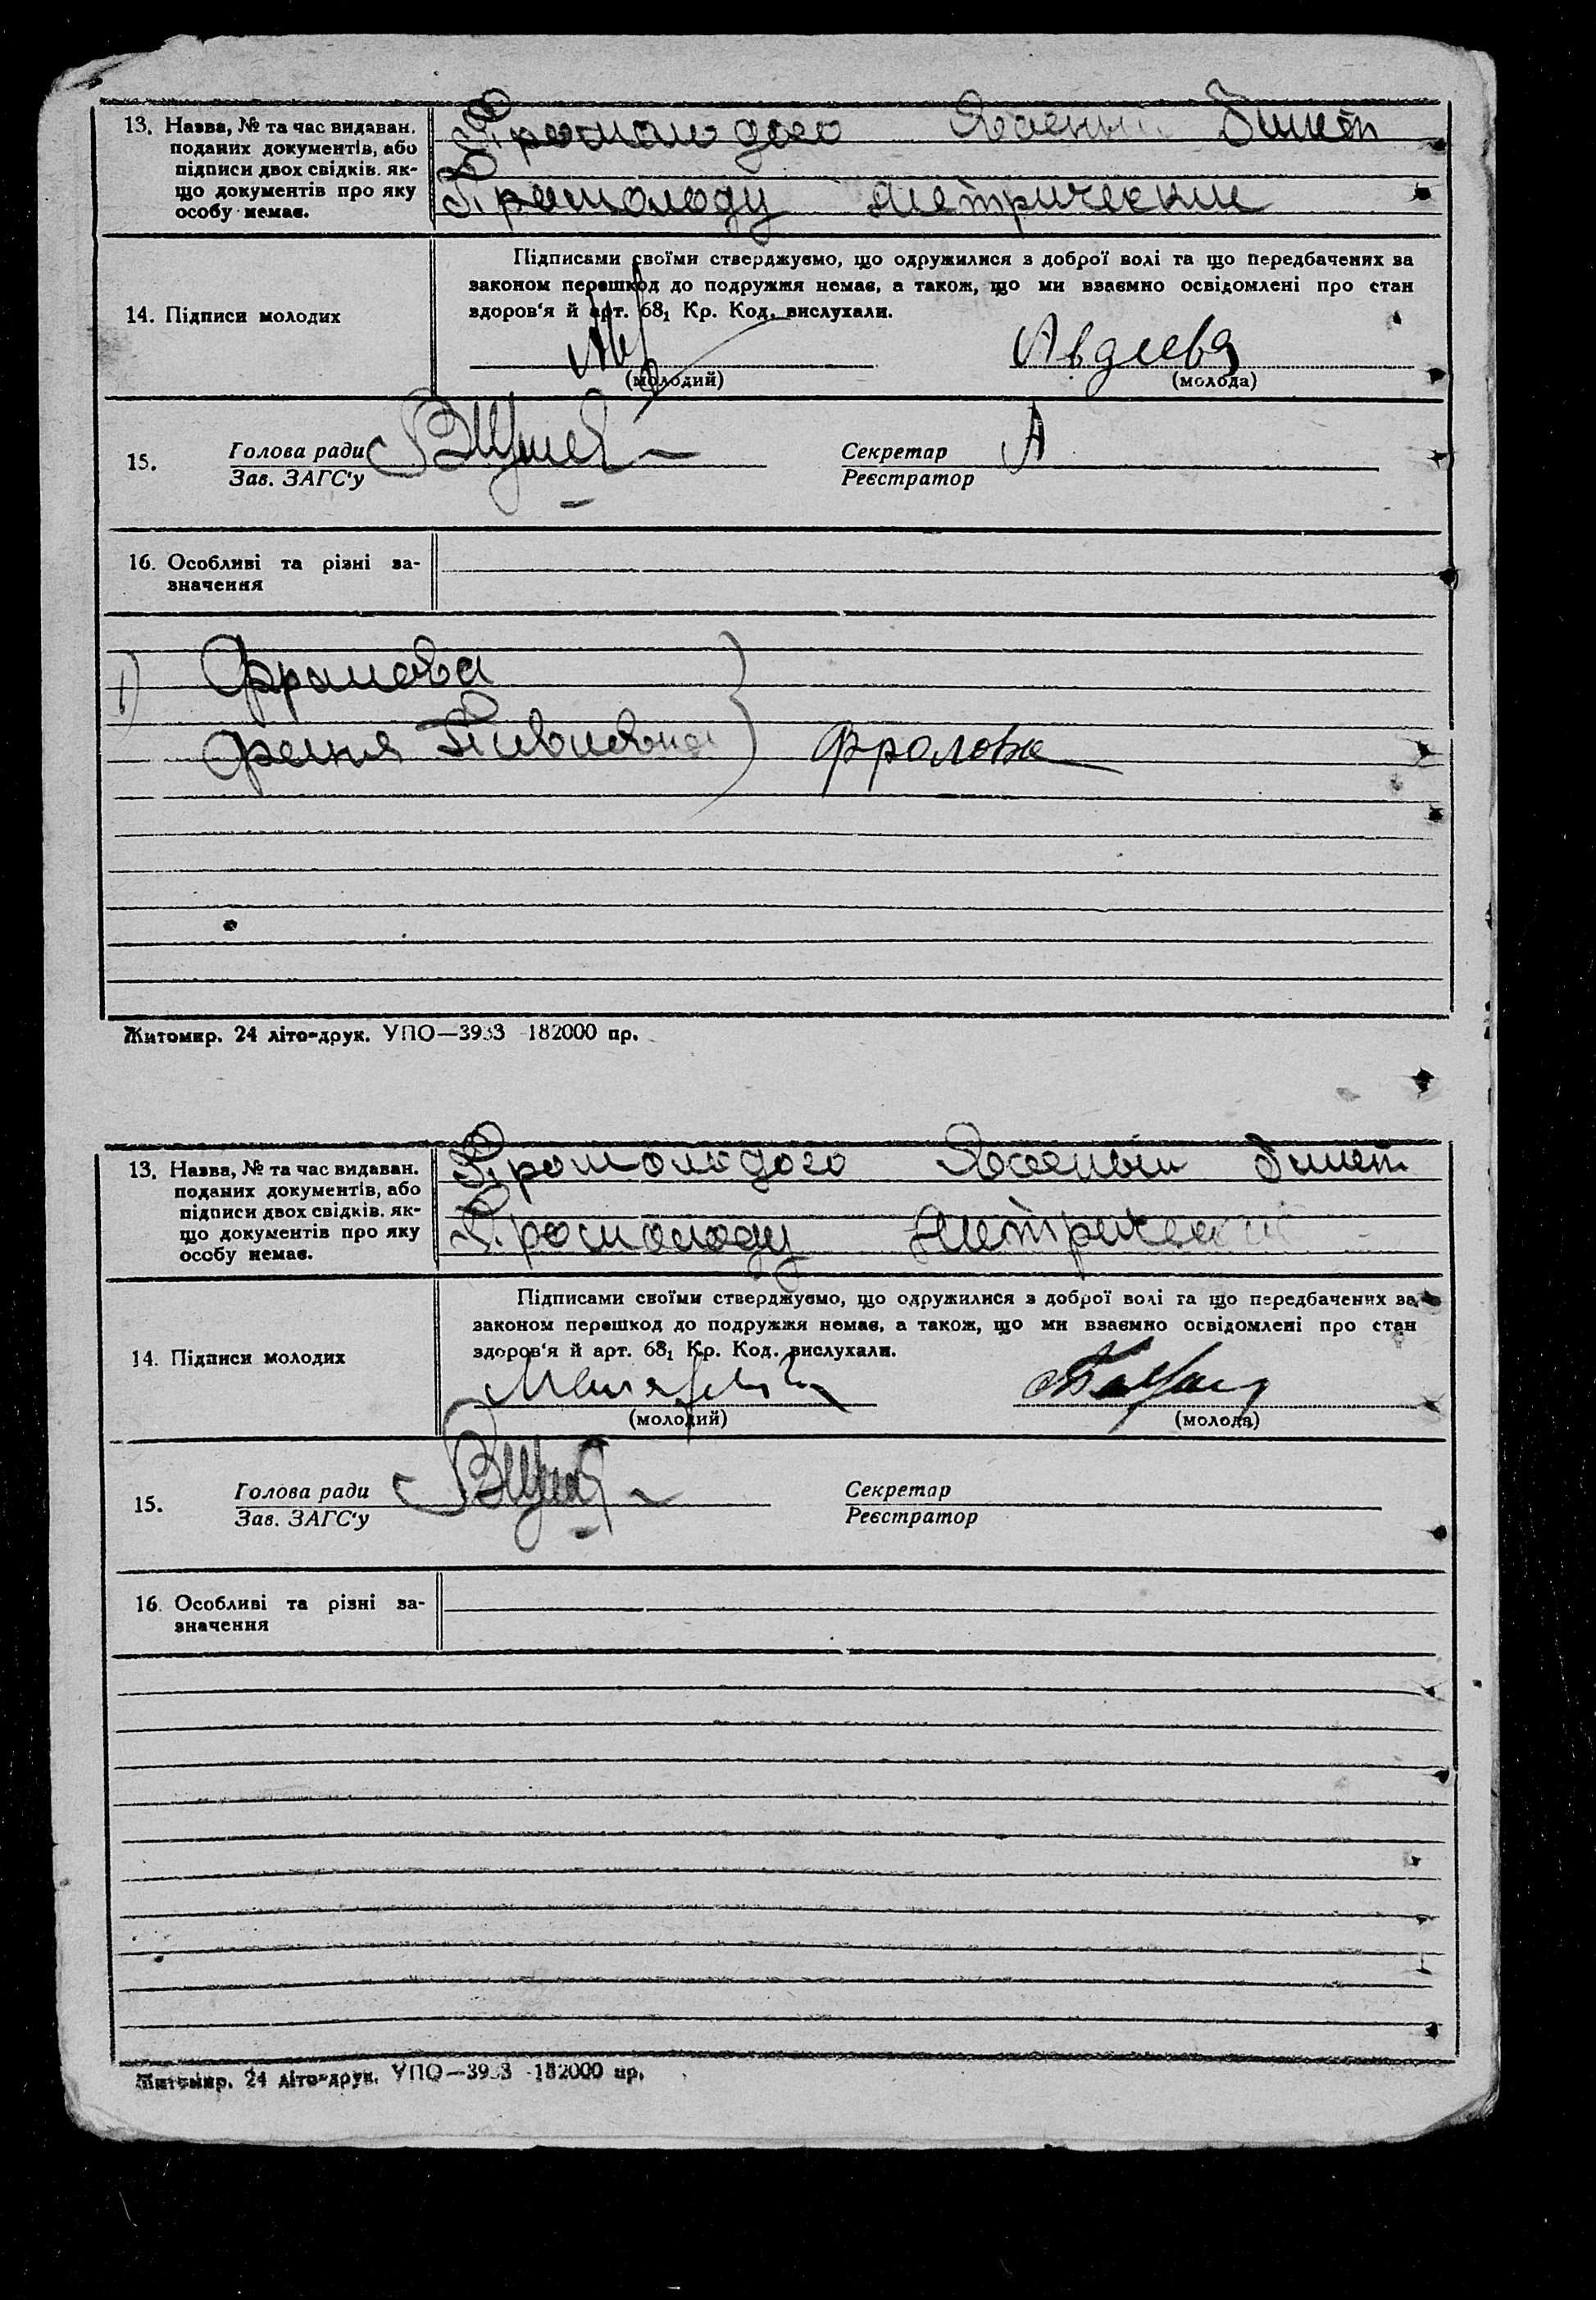 13. Назва, № та час видаван. поданих документів, або підписи двох свідків. як- що документів про яку особу немає.
Промолодого Военный билет
Промолоду метрически
Підписами своїми стверджуємо, що одружилися з доброї волі та що передбачених за
законом перешкод до подружжя немає, а також, що ми взаємно освідомлені про стан
здоров'я й арт. 68₁ Кр. Код. вислухали.
14. Підписи молодих
Авдеева
(молодий) (молода)
15. Голова ради Секретар
Зав. ЗАГС'у Реєстратор
16. Особливі та різні за-
значення
1) Фролова
Феня Фролова
Житомир. 24 літо-друк. УПО—3933 182000 пр.
13. Назва, № та час видаван. поданих документів, або підписи двох свідків. як- що документів про яку особу немає.
Промолодого Военный билет
Промолоду
Підписами своїми стверджуємо, що одружилися з доброї волі та що передбачених за
законом перешкод до подружжя немає, а також, що ми взаємно освідомлені про стан
здоров'я й арт. 68₁ Кр. Код. вислухали.
14. Підписи молодих
(молодий) (молода)
15. Голова ради Секретар
Зав. ЗАГС'у Реєстратор
16. Особливі та різні за-
значення
Житомир. 24 літо-друк. УПО—3933 182000 пр.